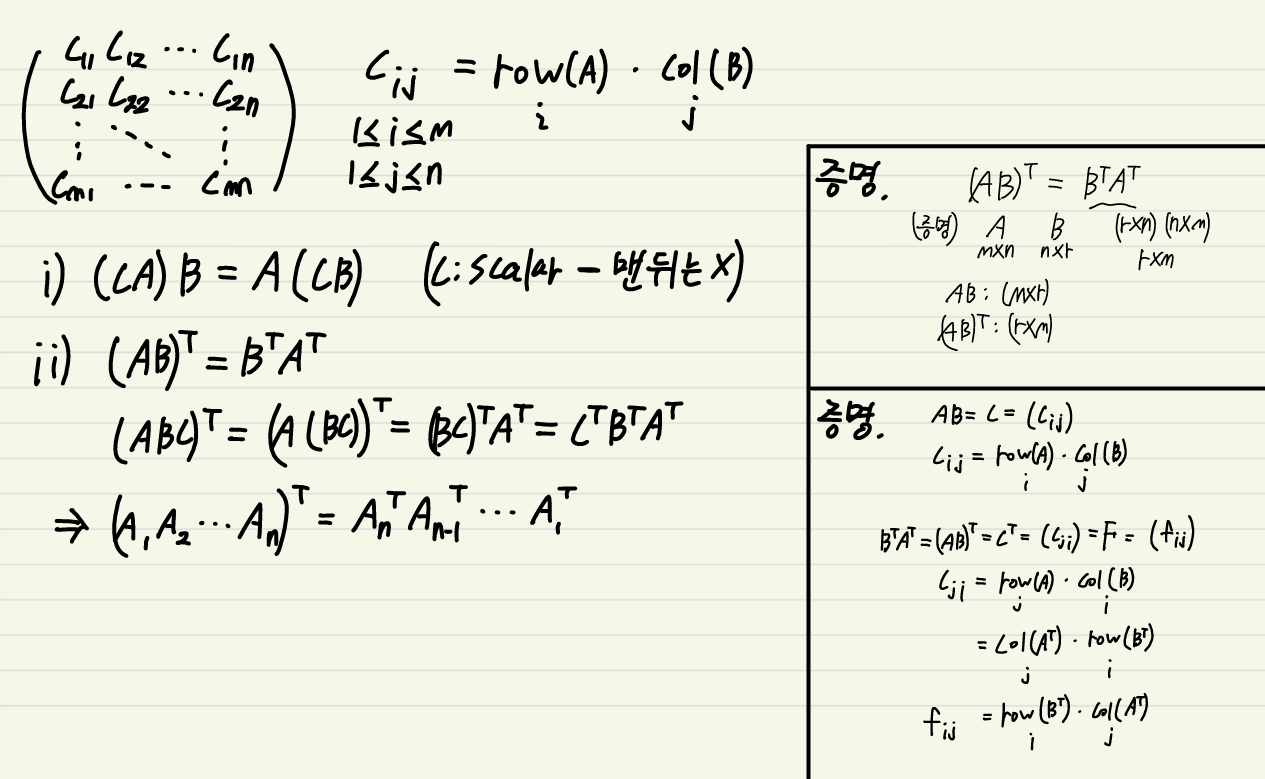 C₁₁ C₁₂ ⋯ C₁n
C₂₁ C₂₂ ⋯ C₂n
⋮ ⋱ ⋮
Cm₁ ⋯ Cmn
Cij = row(A) · col(B)
i j
1 ≤ i ≤ m
1 ≤ j ≤ n
i) (CA)B = A(CB) (C: scalar - 맨뒤는 X)
ii) (AB)ᵀ = BᵀAᵀ
(ABC)ᵀ = (A(BC))ᵀ = (BC)ᵀAᵀ = CᵀBᵀAᵀ
⇒ (A₁A₂⋯An)ᵀ = AnᵀAn-1ᵀ ⋯ A₁ᵀ
증명. (AB)ᵀ = BᵀAᵀ
(증명) A B (r×n) (n×m)
m×n n×r r×m
AB : (m×r)
(AB)ᵀ : (r×m)
증명. AB = C = (Cij)
Cij = row(A) · col(B)
i j
BᵀAᵀ = (AB)ᵀ = Cᵀ = (Cji) = F = (fij)
Cji = row(A) · col(B)
j i
= col(Aᵀ) · row(Bᵀ)
j i
fij = row(Bᵀ) · col(Aᵀ)
i j